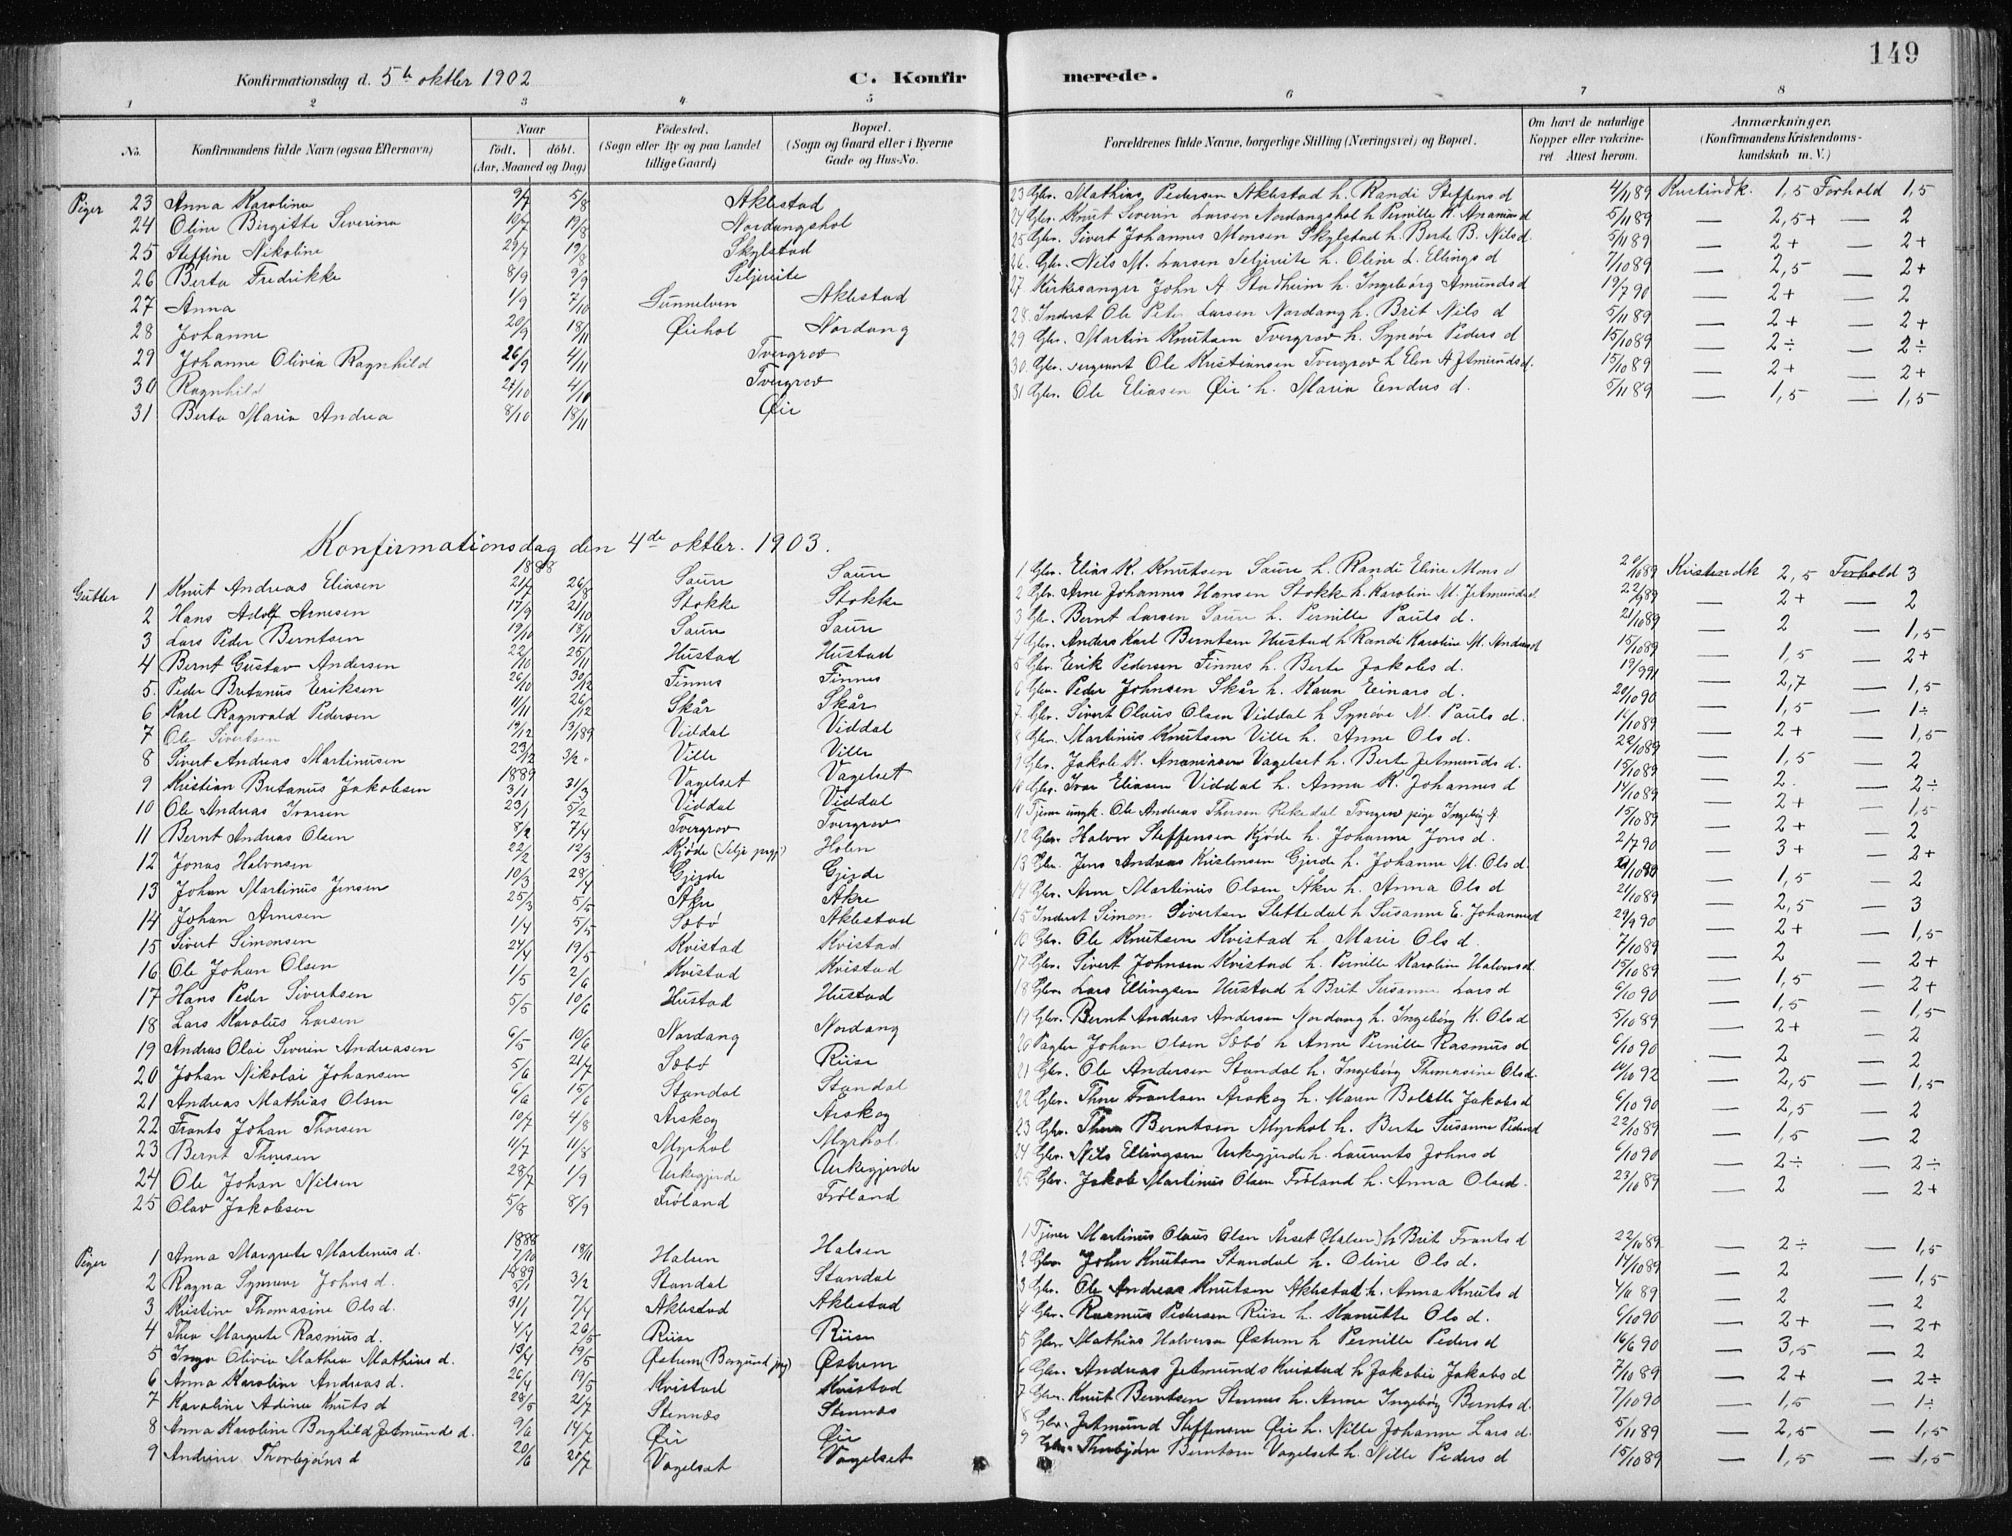 149
Konfirmationsdag d. 5te oktbr 1902
C. Konfirmerede.
1 2 3 4 5 6 7 8
No. Konfirmandens fulde Navn (ogsaa Efternavn) Naar født. døbt. (Aar, Maaned og Dag) Fødested. (Sogn eller By og paa Landet tillige Gaard) Bopæl. (Sogn og Gaard eller i Byerne Gade og Hus-No. Forældrenes fulde Navne, borgerlige Stilling (Næringsvei) og Bopæl. Om havt de naturlige Kopper eller vakcineret Attest herom. Anmærkninger. (Konfirmandens Kristendomskundskab m. V.)
Piger 23 Anna Karoline 9/7 5/8 Aklestad 23 Gbr. Mathias Pedersen Aklestad h. Randi Steffens d 4/11 89 Kristindk. 1,5 Forhold 1,5
24 Oline Birgitte Severine 19/7 19/8 Nordangshol 24 Gbr. Knut Severin Larsen Nordangshol h Pernille K. Ananias d 5/11 89 — 2,5+ — 2
25 Steffine Nikoline 29/7 19/8 Skylstad 25 Gbr. Sivert Johannes Monsen Skylstad h. Berte B. Nils d. 5/11 89 — 2+ — 2+
26 Berta Fredrikke 8/9 9/9 Seljeveite 26. Gbr. Nils M. Larsen Seljeveite h. Oline L. Ellings d 7/10 89 — 2,5 — 2+
27 Anna 1/9 7/10 Sunnelven Aklestad 27 Kirkesanger John A Stadheim h. Ingebørg Amunds d 19/7 90 — 2+ — 2
28 Johanne 20/9 18/11 Øiehol Nordang 28. Inderst Ole Peter Larsen Nordang h. Brit Nils d 5/11 89 — 2+ — 2+
29 Johanne Olivia Ragnhild 26/9 4/11 Tvergrov 29 Gbr. Martin Knutsen Tvergrov h. Synøve Peders d 15/10 89 — 2÷ — 2÷
30 Ragnhild 21/10 4/10 Tvergrov 30. Gbr. sergeant Ole Kristiansen Tvergrov h Elen A Jetmunds d. 15/10 89 — 2+ — 2+
31 Berta Maria Andrea 8/10 18/11 Øie 31 Gbr. Ole Eliasen Øie h. Maria Endres d. 5/11 89 — 1,5 — 1,5
Konfirmationsdag den 4de oktbr. 1903.
1888
Gutter 1 Knut Andreas Eliasen 21/7 26/8 Saure Saure 1 Gbr. Elias K. Knutsen Saure h. Randi Eline Mons d 22/10 89 Kristendk 2,5 Forhold 3
2 Hans Adolf Arnesen 17/9 21/10 Stokke Stokke 2 Gbr. Arne Johannes Hansen Stokk h. Karoline M. Jetmunds d 22/9 89 — 2+ — 2
3 Lars Peder Berntsen 19/10 18/11 Saure Saure 3 Gbr. Bernt Larsen Saure h. Pernille Pauls d. 21/10 89 — 2 — 1,5
4 Bernt Gustav Andersen 22/10 25/11 Hustad Hustad 4 Gbr. Anders Karl Berntsen Hustad h Randi Karoline M. Andreas d 15/10 89 — 1,5 — 2+
5. Peder Britanus Eriksen 26/10 30/12 Finnes Finnes 5 Gbr. Erik Pedersen Finnes h. Berte Jakobs d. 19/9 91 — 2,7 — 1,5
6 Karl Ragnvald Pedersen 11/11 26/12 Skår Skår 6 Gbr. Peder Johnsen Skår h. Karen Einars d. 20/10 90 — 1,5 — 1÷
7 Ole Sivertsen 19/12 13/1 89 Viddal Viddal 7. Gbr. Sivert Olaus Olsen Viddal h Synøve M. Pauls d. 14/10 89 — 2+ — 1,5
8 Sivert Andreas Martinusen 23/12 3/2 „ Ville Ville 8 Gbr. Martinus Knutsen Ville h. Anne Ols d. 22/10 89 — 1,5 — 2
1889
9 Kristian Britanus Jakobsen 3/1 31/3 Vagelset Vagelset 9 Gbr. Jakob K. Ananiasen Vagelset h. Berte Jetmunds d. 15/10 89 — 2. — 2÷
10 Ole Andreas Ivarsen 23/1 5/2 Viddal Viddal 10 Gbr. Ivar Eliasen Viddal h. Anna K. Johannes d 14/10 89 — 2+ — 1,5
11 Bernt Andreas Olsen 8/2 7/4 Tvergrov Tvergrov 11 Tjener ungk. Ole Andreas Thorsen Rekedal Tvergrov pige Ingebørg A. 15/10 89 — 2+ — 2
12 Jonas Halvorsen 22/2 12/3 Kjøde (Selje prgj.) Holen 12 Gbr. Halvor Steffensen Kjøde h. Johanne Jons d. 2/7 90 — 3+ — 2+
13 Johan Martinus Jensen 10/3 28/4 Gjerde Gjerde 13 Gbr. Jens Andreas Kristensen Gjerde h. Johanne M. Ols d. 21/10 89 — 1,5 — 2
14 Johan Arnesen 25/3 5/5 Åkre Åkre 14 Gbr. Arne Martinus Olsen Åkre h. Anna Ols d 21/10 89 — 2,5 — 3
15 Sivert Simonsen 1/4 5/5 Sæbø Aklestad 15 Inderst Simon Sivertsen Slettedal h Susanne E. Johannes d 29/9 90 — 2+ — 1,5
16 Ole Johan Olsen 24/4 19/5 Kvistad Kvistad 16 Gbr. Ole Knutsen Kvistad h. Marie Ols d. 7/10 89 — 2 — 2+
17 Hans Peder Sivertsen 1/5 2/6 Kvistad Kvistad 17 Gbr. Sivert Johnsen Kvistad h. Pernille Karoline Halvors d. 15/10 89 — 1,5 — 2+
18 Lars Karolus Larsen 5/5 10/6 Hustad Hustad 18 Gbr. Lars Ellingsen Hustad h Brit Susanne Lars d 6/10 90 — 1,5 — 1,5
19 Andreas Olai Severin Andreasen 6/5 10/6 Nordang Nordang 19 Gbr. Bernt Andreas Andersen Nordang h. Ingebørg K. Ols d 5/10 89 — 2+ — 2
20 Johan Nikolai Johansen 5/6 21/7 Sæbø Riise 20 Pagter Johan Olsen Sæbø h Anne Pernille Rasmus d 6/10 90 — 2 — 2
21 Andreas Mathias Olsen 6/6 15/6 Standal Standal 21 Gbr. Ole Andersen Standal h. Ingebørg Thomasine Ols d. 10/10 92 — 2,5 — 1,5
22 Frants Johan Thorsen 10/7 4/8 Årskog Årskog 22 Gbr. Thore Frantsen Årskog h. Maren Bolette Jakobs d 6/10 90 — 2,5 — 2
23 Bernt Thoresen 11/7 11/8 Myrhol Myrhol 23 Gbr. Thore Berntsen Myrhol h. Berte Susanne Peders d 22/10 89 — 1,5 — 2
24 Ole Johan Nilsen 28/7 1/9 Urkegjerde Urkegjerde 24 Gbr. Nils Ellingsen Urkegjerde h. Laurents Johns d 6/10 90 — 2÷ — 2÷
25 Olav Jakobsen 5/8 8/9 Frøland Frøland 25 Gbr. Jakob Martinus Olsen Frøland h. Anna Olsed. 23/10 89 — 2 — 2+
1888
Piger 1 Anna Margrete Martinus d. 7/10 18/11 Halsen Halsen 1 Tjener Martinus Olaus Olsen Årset (Halsen) h Brit Frants d 22/10 89 — 2÷ — 1,5
1889
2 Ragna Synneve Johns d. 5/1 3/2 Standal Standal 2 Gbr. John Knutsen Standal h. Oline Ols d. 14/10 89 — 2 — 1,5
3 Kristine Thomasine Ols d. 31/1 7/4 Aklestad Aklestad 3 Gbr. Ole Andreas Knutsen Aklestad h. Anna Knuts d 4/11 89 — 2 — 2
4 Thea Margrete Rasmus d. 4/4 26/5 Riise Riise 4 Gbr. Rasmus Pedersen Riise h. Knutte Ols d. 6/10 90 — 2+ — 2+
5 Inga Olivia Mathea Mathias d. 13/4 19/5 Østrem (Borgund prgj) Østrem 5 Gbr. Mathias Halvorsen Østrem h Pernille Peders d 16/6 90 — 3,5 — 2
6 Anna Karoline Andreas d. 26/4 19/5 Kvistad Kvistad 6 Gbr. Andreas Jetmunds Kvistad h Jakobie Jakobs d 7/10 89 — 2+ — 2÷
7 Karoline Adine Knuts d 28/5 21/7 Stennæs Stennæs 7 Gbr. Knut Berntsen Stennes h. Anne Ingebørg Bernts d. 7/10 90 — 1,5 — 1÷
8 Anna Karoline Borghild Jetmunds d. 9/6 14/7 Øie Øie 8 Gbr. Jetmund Steffensen Øie h. Nille Johanne Lars d. 5/11 89 — 2,5 — 1,5
9 Andrine Thorbjørns d 20/6 21/7 Vagelset Vagelset 9 Gbr. Thorbjørn Berntsen Vagelset h. Nille Peders d 15/10 89 — 1,5 — 1,5